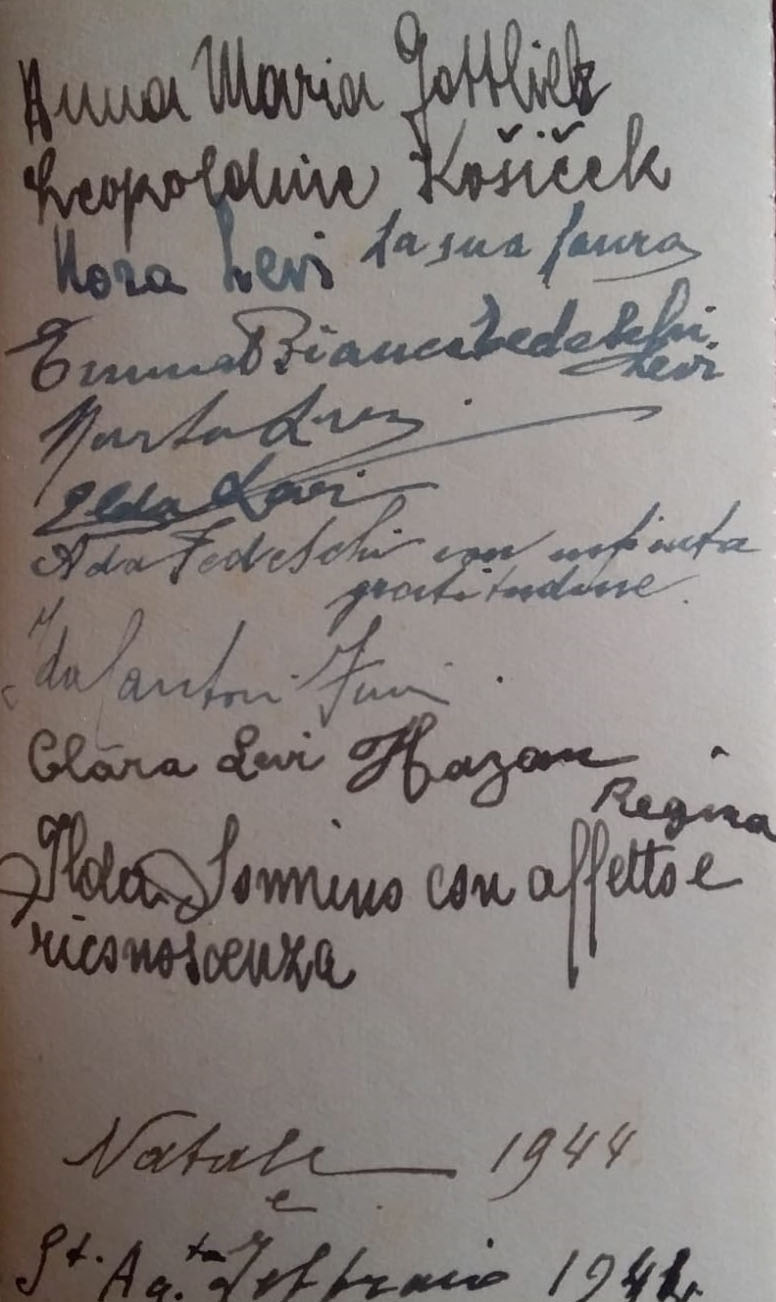 Anna Maria Gottlieb
Leopoldine Košiček
Nora Levi La sua Laura
Emma Bianca Tedeschi
Levi
Marta
Elda Levi
Ada Tedeschi con infinita
gratitudine
Ida Santoni
Clara Levi Hazan
Regina
Ilda Sonnino con affetto e
riconoscenza
Natale 1944
e
St. Ag.ta Febbraio